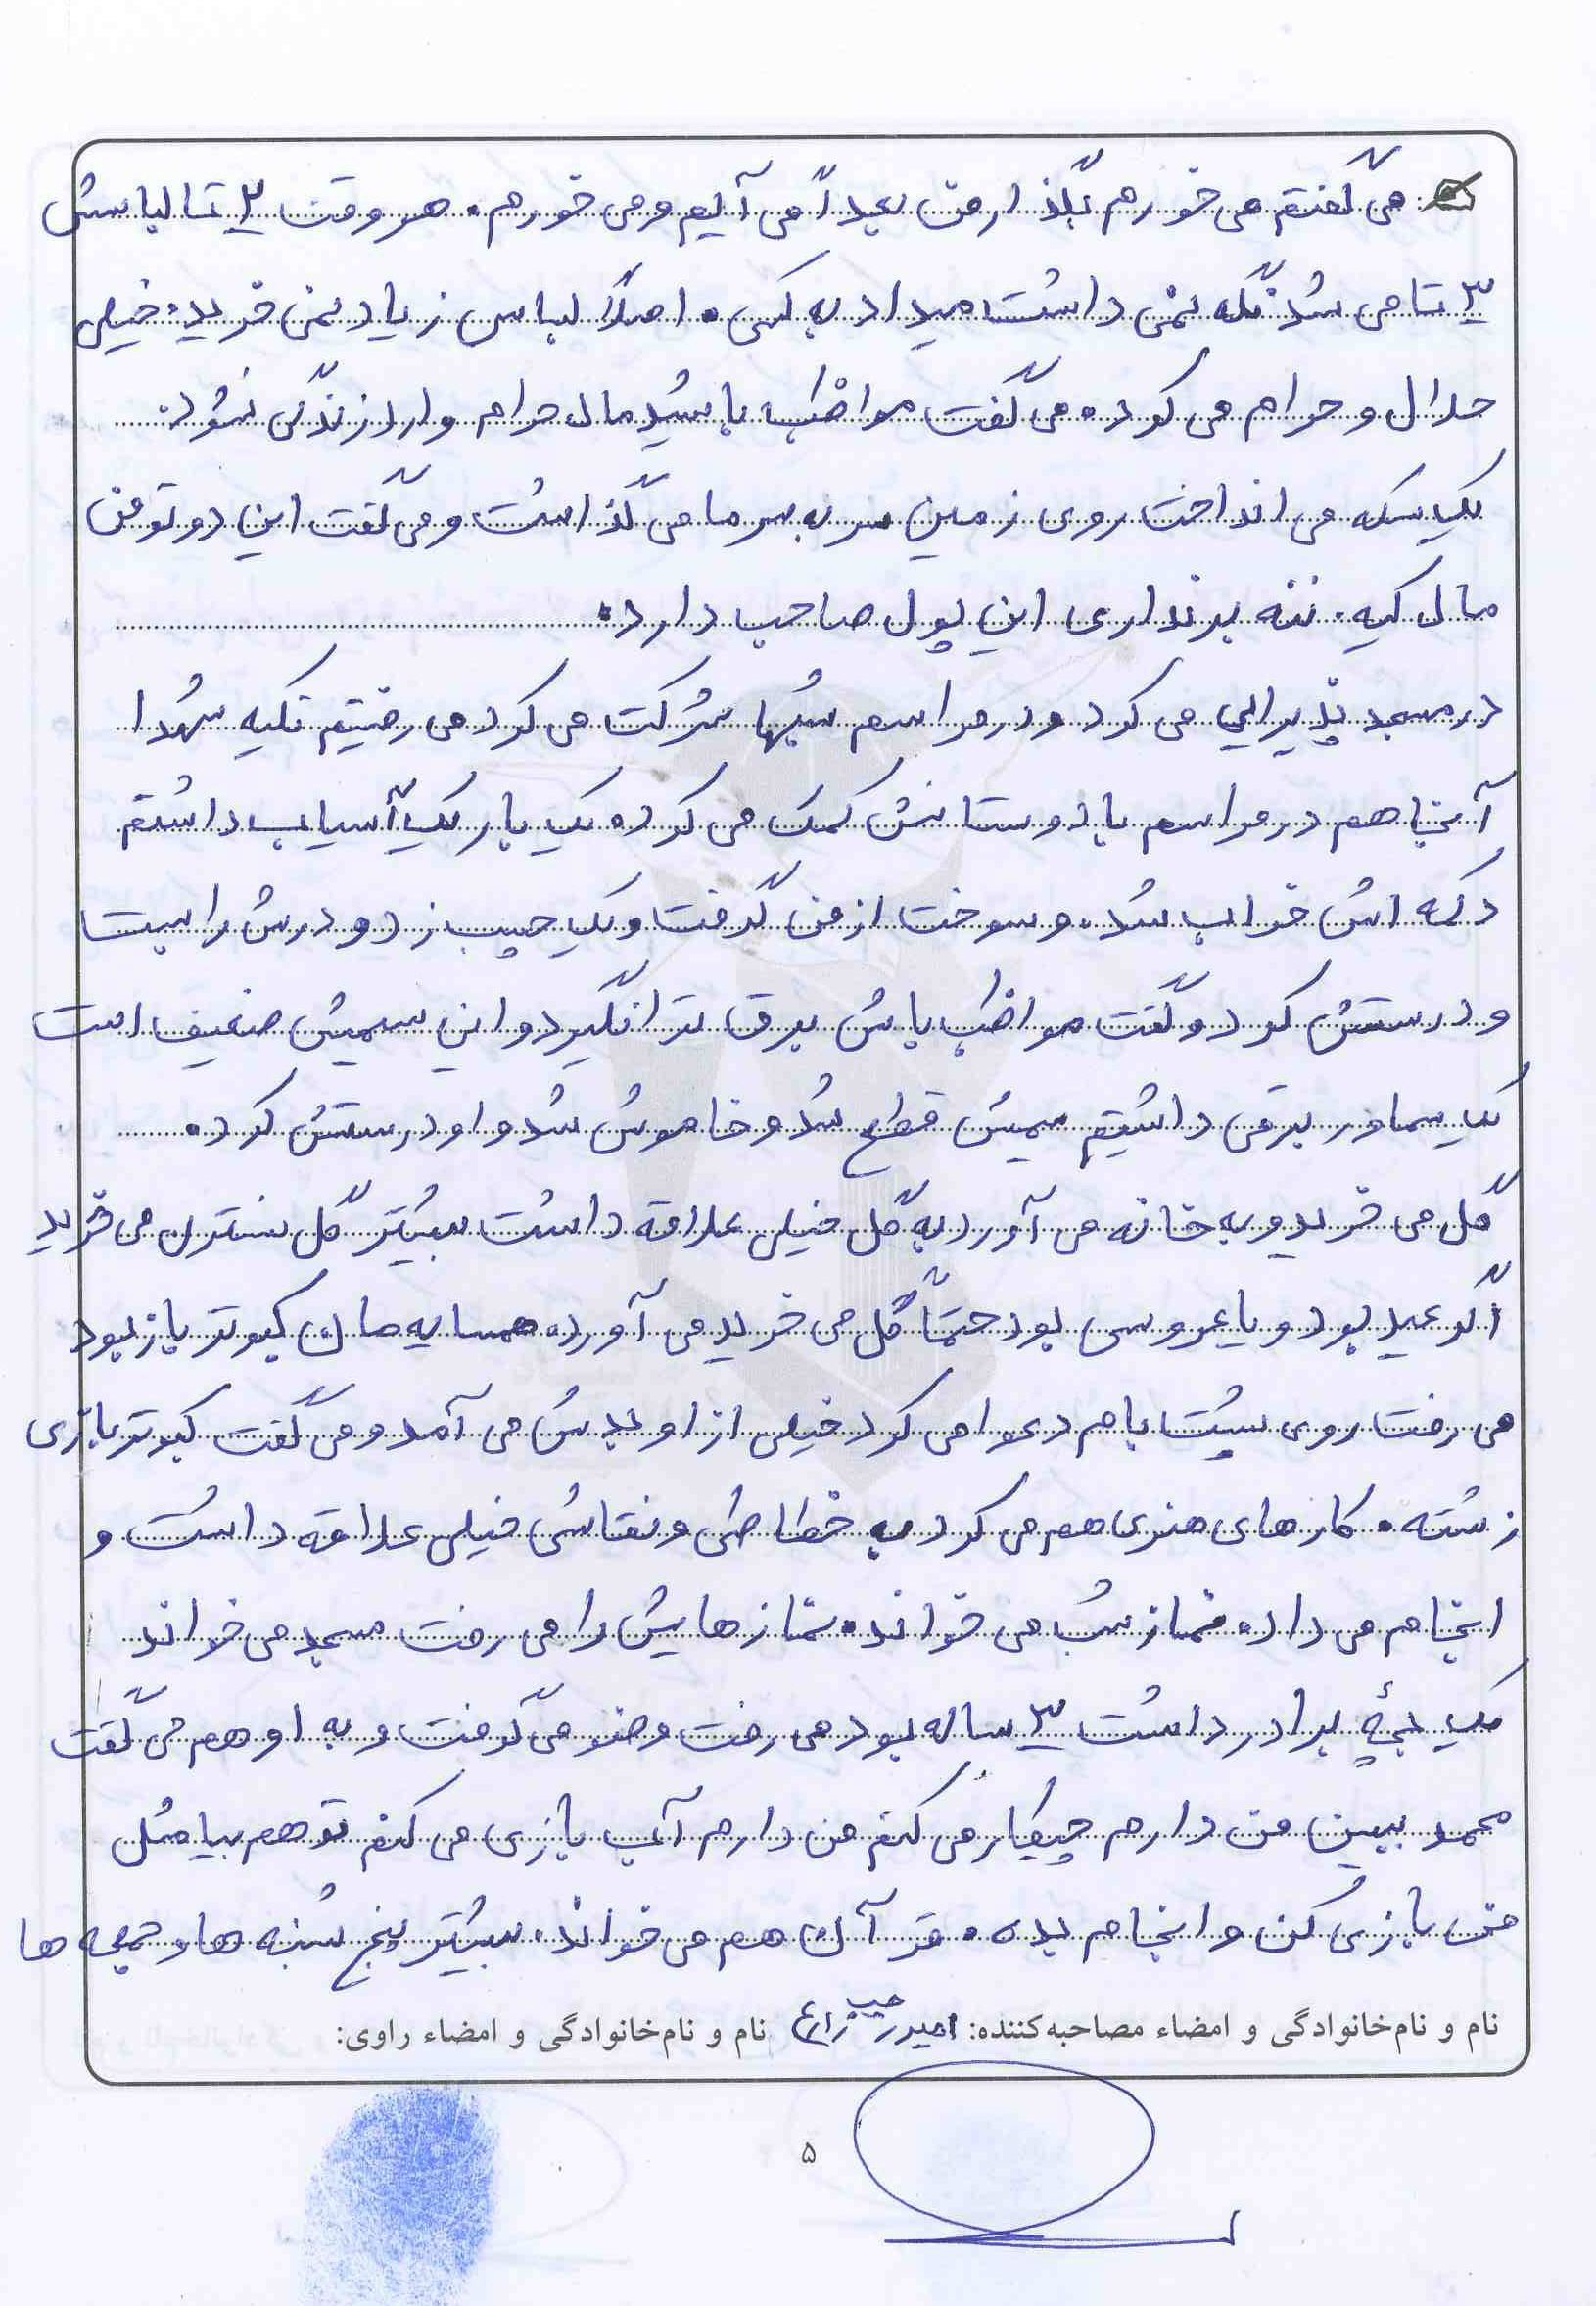 می گفتم می خورم بگذار من بعداً می آیم و می خورم. هر وقت ۲ تا لباسش
۳ تا می شد نگه نمی داشت میداد به کسی. اصلاً لباس زیاد نمی خرید. خیلی
حلال و حرام می کرد. می گفت مواظب باشید مال حرام وارد زندگی نشود.
یک سکه می انداخت روی زمین سر به سر ما می گذاشت و می گفت این دو تومن
مال کیه. ننه برنداری این پول صاحب دارد.
در مسجد پذیرایی می کرد و در مراسم شبها شرکت می کرد می رفتیم تکیه شهدا
آنجا هم در مراسم با دوستانش کمک می کرد. یک بار یک آسیاب داشتم
دکمه اش خراب شد. و سوخت از من گرفت و یک چسب زد و درش را بست
و درستش کرد و گفت مواظب باش برق ترا نگیرد و این سیمش ضعیف است
یک سماور برقی داشتیم سیمش قطع شد و خاموش شد و او درستش کرد.
گل می خرید و به خانه می آورد به گل خیلی علاقه داشت بیشتر گل نسترن می خرید
اگر عید بود و یا عروسی بود حتماً گل می خرید می آورد. همسایه مان کبوتر باز بود
می رفت روی پشت بام دعوا می کرد خیلی از او بدش می آمد و می گفت کبوتر بازی
زشته. کارهای هنری هم می کرد به خطاطی و نقاشی خیلی علاقه داشت و
انجام می داد. نماز شب می خواند. نمازهایش را می رفت مسجد می خواند
یک بچهٔ برادر داشت ۳ ساله بود می رفت وضو می گرفت و به او هم می گفت
محمد ببین من دارم چیکار می کنم من دارم آب بازی می کنم تو هم بیا مثل
من بازی کن و انجام بده. قرآن هم می خواند. بیشتر پنج شنبه ها و جمعه ها
نام و نام‌خانوادگی و امضاء مصاحبه‌کننده: امیر رجب زارع نام و نام‌خانوادگی و امضاء راوی:
۵